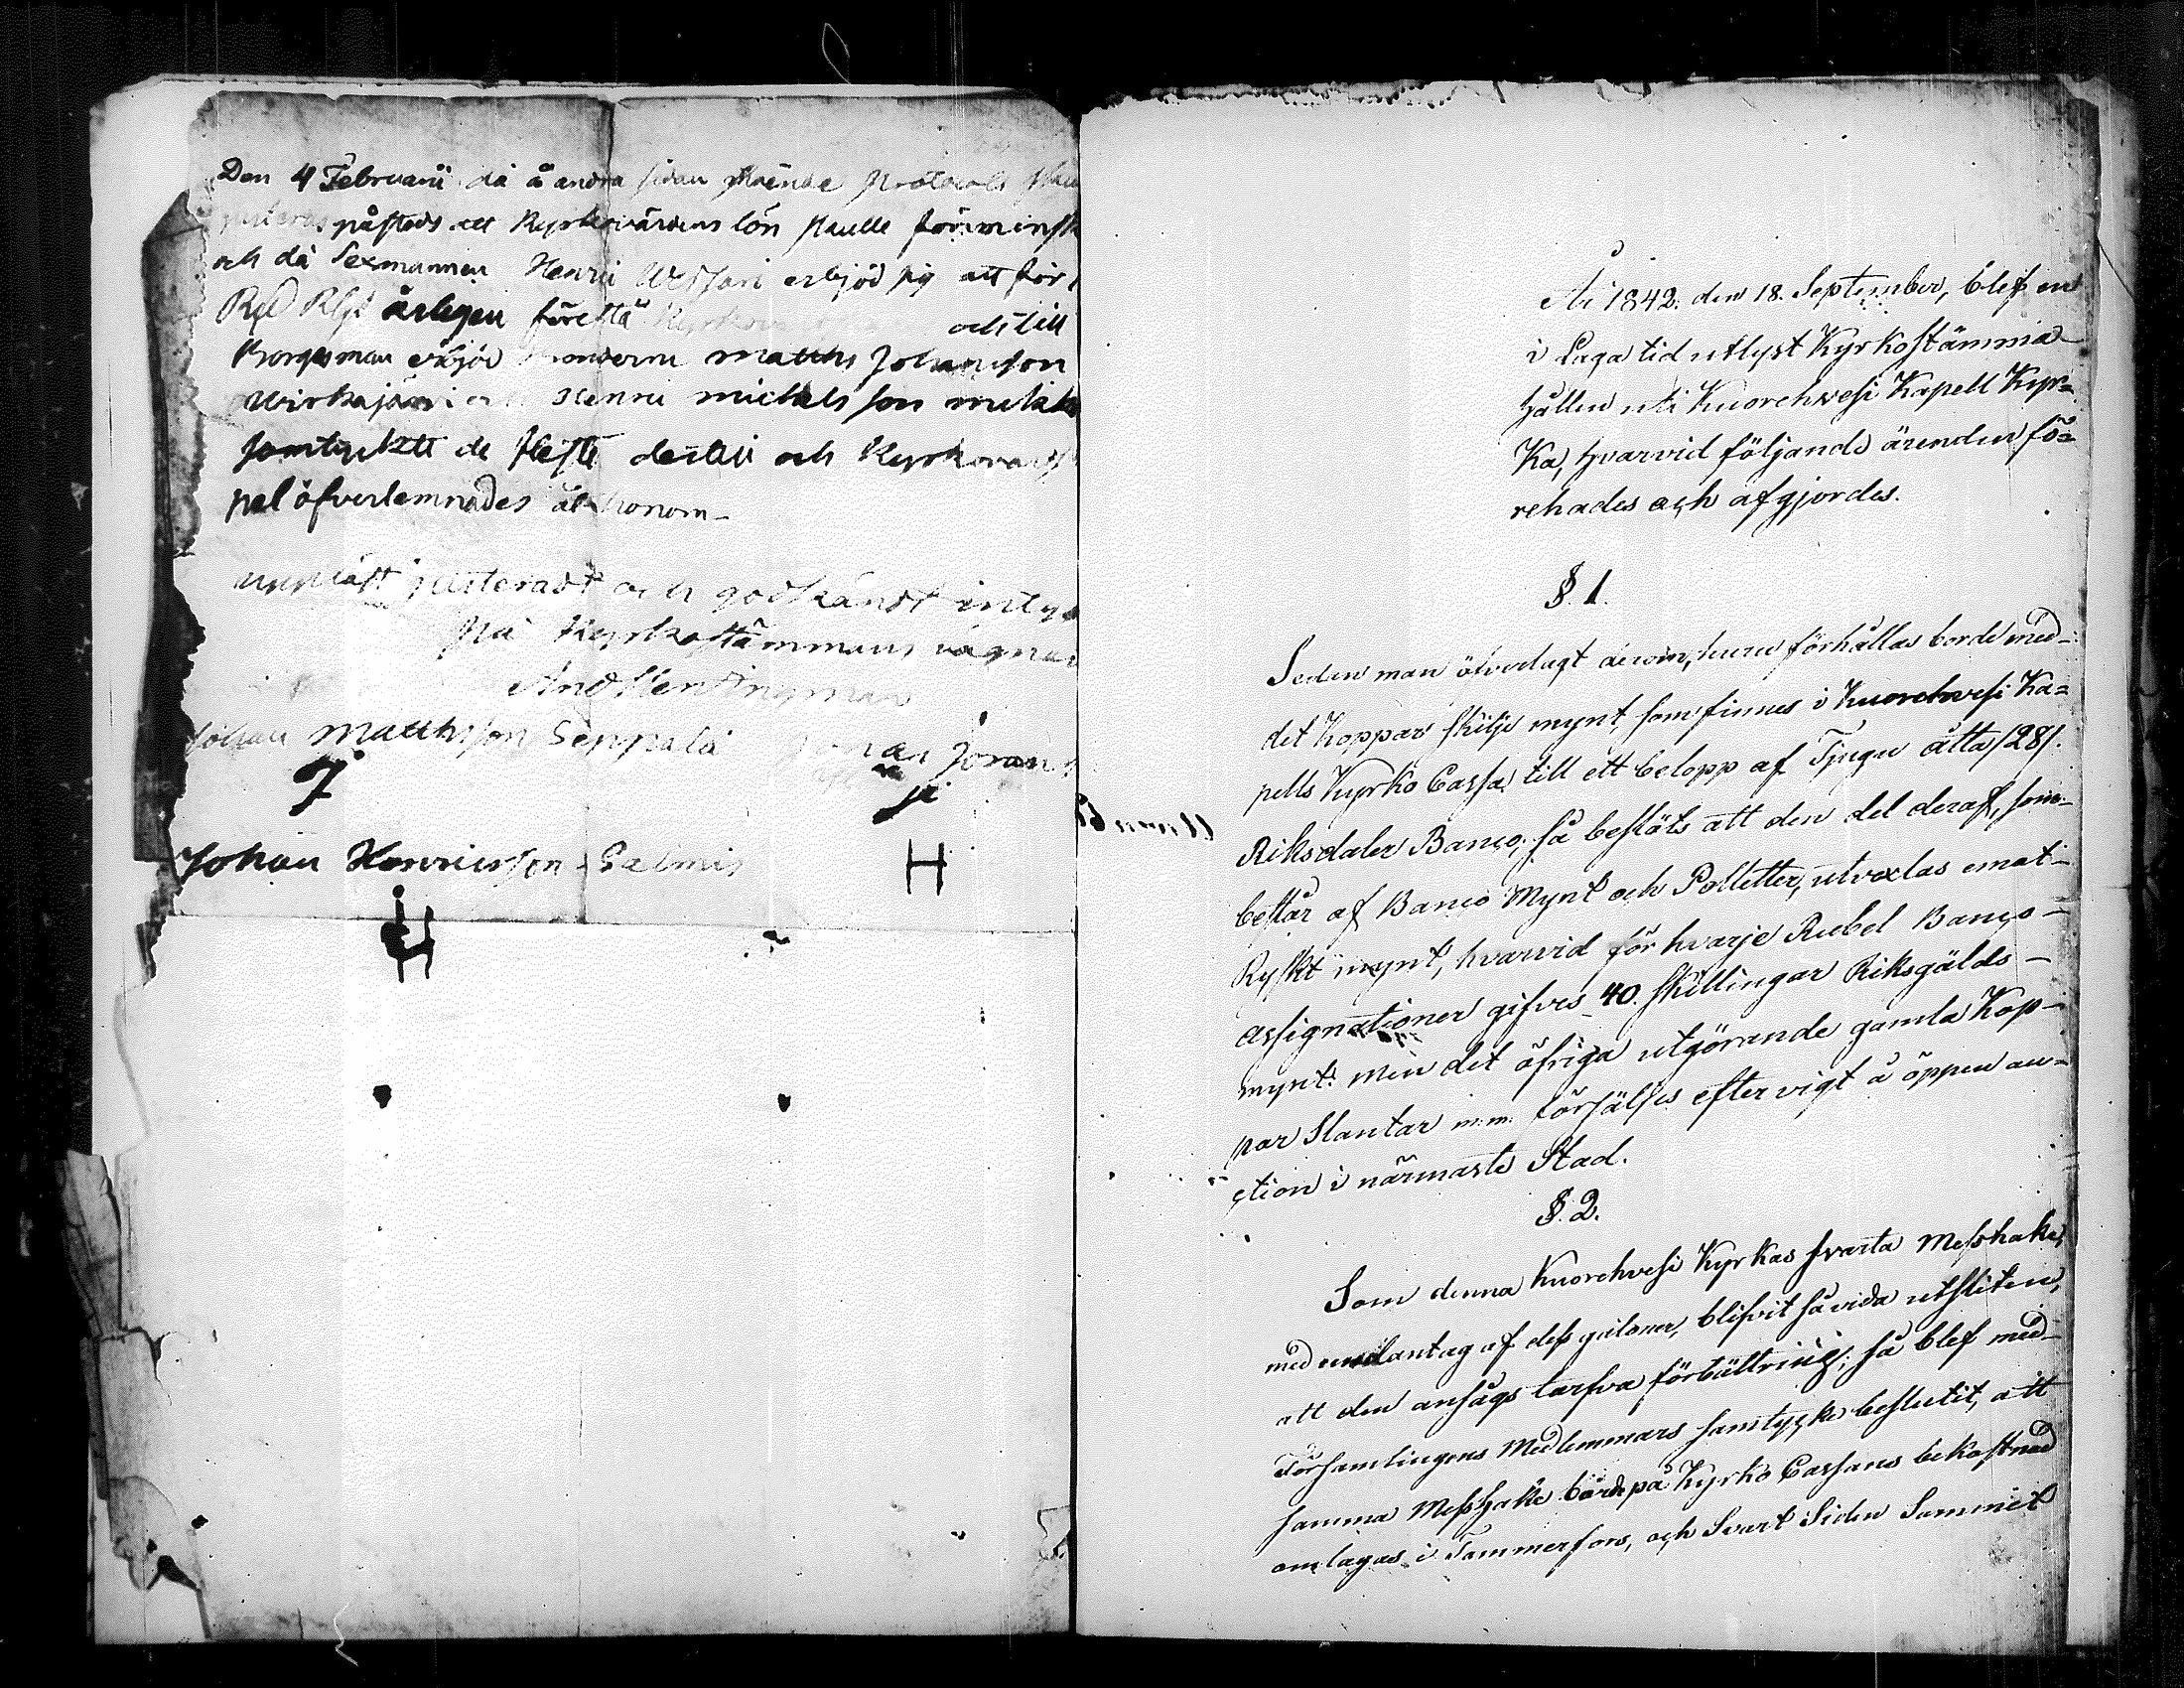 Den 4 Februarii då å andra sidan stående Protocoll skulle
justeras påstods att Kyrkovärdens lön skulle förminsk
och då Sexmannen Henric Wessari erbjöd sig att för
Rub Rgs årligen förestå och till
Borgesman erbjöd bönderne Matths Johansson
Wirkajärvi och Henric Michelsson
samtyckte de fleste dertill och Kyrkovärds
pel öfverlemnades åt honom_
uppläst justeradt och godkändt intyga
På Kyrkostämmans vägnar
And Nyman
Johan Matthsson Seppälä Johan
J
Johan Henricsson Salmis H
År 1842. den 18. September, blef en
i Laga tid utlyst Kyrkostämma
hållen uti Kuorehvesi Kapell Kyr=
Ka, hvarvid följande ärender fö=
rehades och afgjordes.
§. 1.
Sedan man öfverlagt derom, huru förhållas borde med
det Koppar skilje mynt, som finnes i Kuorehvesi Ka=
pells Kyrko Cassa, till ett belopp af Tjugu åtta /28/.
Riksdaler Banco, så beslöts att den del deraf, som
består af Banco Mynt och Polletter, utvexlas emot
Ryskt mynt, hvarvid för hvarje Rubel Banco-
assignationer gifves 40. skillingar Riksgälds-
mynt: men det öfriga utgörande gamla Kop-
par Slantar m.m. försäljes efter vigt å öppen au-
ction i närmaste Stad.
§. 2.
Som denna Kuorehvesi Kyrkas svarta Messhake,
med undantag af dess galoner, blifvit så vida utsliten,
att den ansågs tarfva förbättring; så blef med
Församlingens Medlemmars samtycke beslutit, att
samma Messhake borde på Kyrko Cassans bekostnad
omlagas i Tammerfors, och Svart Siden Sammet